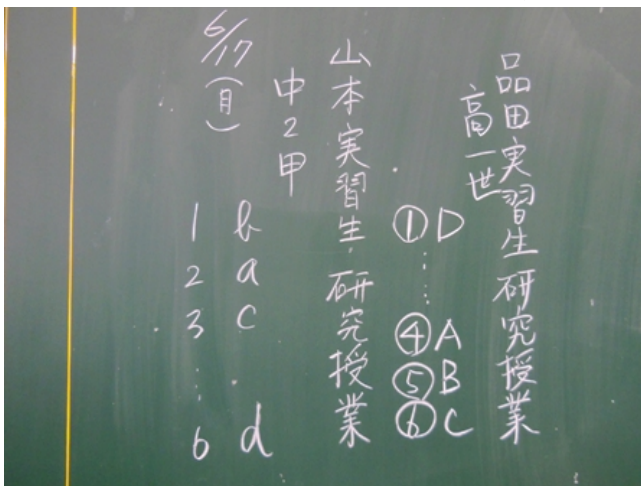 品田実習生研究授業
高一世
①D
⋮
④A
⑤B
⑥C
山本実習生・研究授業
中2甲
b
a
c
d
6/17(月)
1
2
3
⋮
6